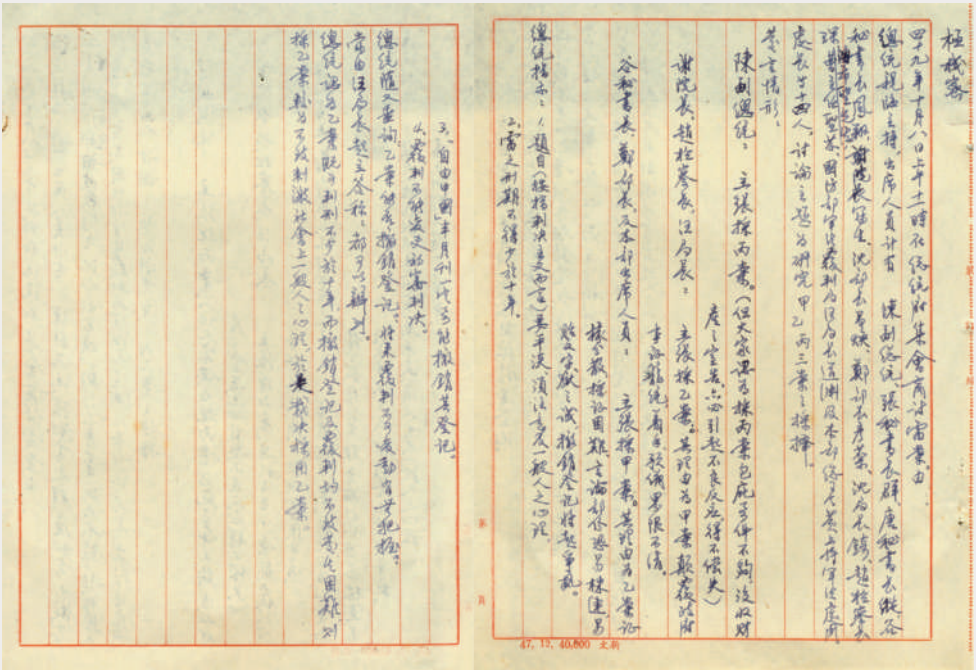 極機密
四十九年十月八日上午十一時在總統府集會商討雷案,由
總統親臨主持,出席人員計有 陳副總統、張秘書長群、唐秘書長縱、谷
秘書長鳳翔、謝院長冠生、沈部長昌煥、鄭部長彥棻、沈局長錡、趙檢察長
琛、國防部軍法覆判局汪局長道淵及本部總司令黃上將軍法處周
處長等十四人,討論主題為研究甲乙丙三案之採擇
發言情形:
陳副總統: 主張採丙案。(但大家認為採丙案包庇要件不夠,沒收財
產之宣告亦必引起不良反應得不償失)
謝院長、趙檢察長、汪局長: 主張採乙案。其理由為甲案顛覆政府
界限不清。
谷秘書長、鄭部長、及本部出席人員: 主張採甲案。其理由為乙案證
據分散採證困難,言論部份恐易株連,易
貽文字獄之議,撤銷登記將起爭執。
總統指示:1、題目(按指判決主文而言)要平淡,須注意及一般人之心理
2、雷之刑期不得少於十年。
3、「自由中國」半月刊一定要能撤銷其登記。
4、覆判不能變更初審判決。
總統隨又垂詢:乙案能否撤銷登記?將來覆判可不變動有無把握?
當由汪局長起立答稱:都可以辦到。
總統認為乙案既可判刑不少於十年,而撤銷登記及覆判均不致發生困難,則
採乙案較為不致刺激社會上一般人之心理,於是裁決採用乙案。
第 頁
47. 12. 40,000 文新